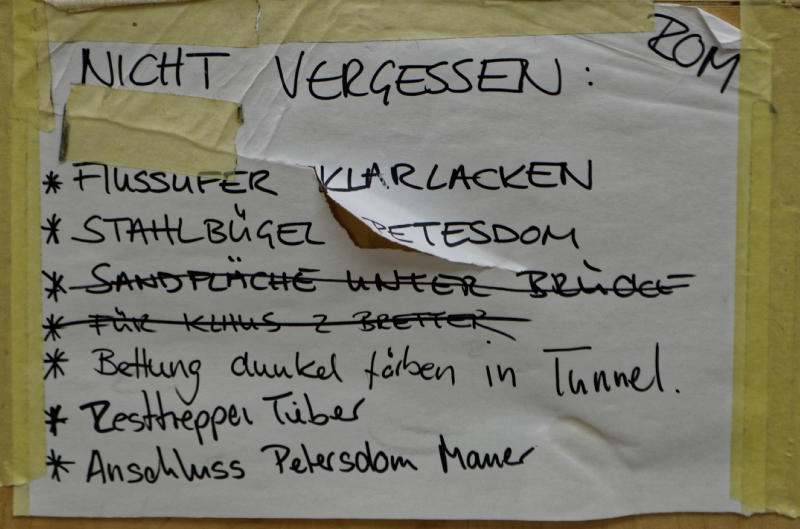 ROM
NICHT VERGESSEN:
* FLUSSUFER KLARLACKEN
* STAHLBÜGEL PETESDOM
* SANDFLÄCHE UNTER BRÜCKE
* FÜR KLAUS 2 BRETTER
* Bettung dunkel färben in Tunnel.
* Resttreppe Tiber
* Anschluss Petersdom Mauer